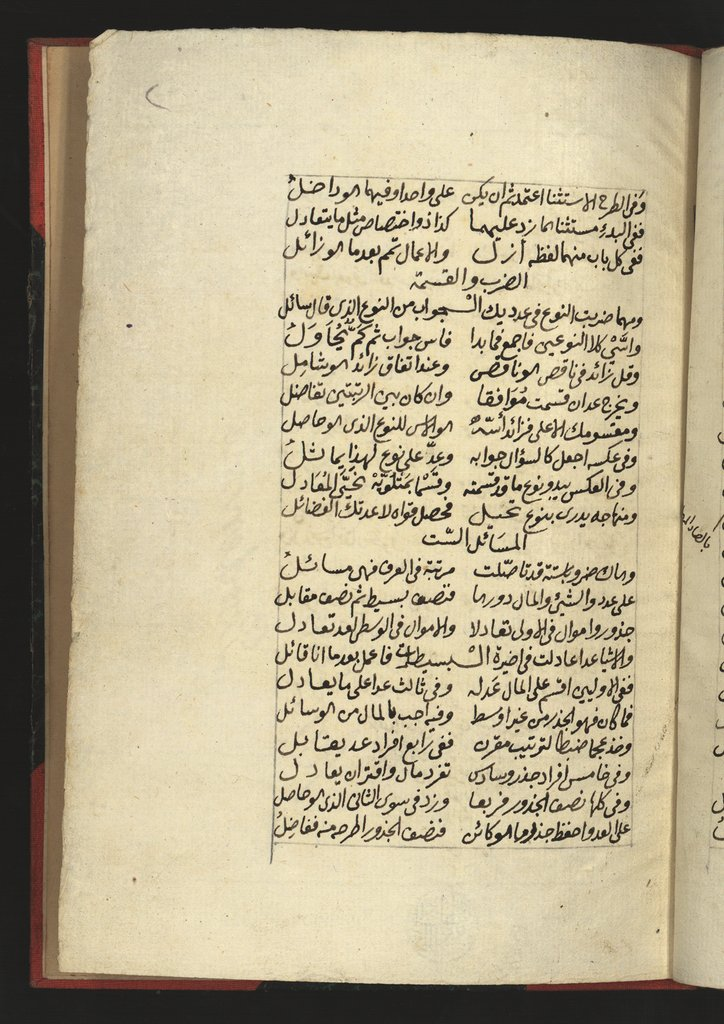 وفي الطرح الاستثنا اعتمد ثم ان يكن على واحد او فيهما هو داخل
ففي البدء مستثنا لما زد عليهما كذا ذو اختصاص مثل ما يتعادل
ففي كل باب منهما لفظه أزل والاعمال تمم بعد ما هو زائل
الضرب والقسمة
ومهما ضربت النوع في عدد يك الجواب من النوع الذي قال سائل
واسّي كلا النوعين فاجمع فما بدا فاس جواب ثم كم
وقل زائد في ناقص هو ناقص وعند اتفاق زائد هو شامل
ويخرج عد ان قسمت موافقا وان كان بين الرتبتين تفاضل
ومقسومك الاعلى فزائد أسه هو الاس للنوع الذي هو حاصل
وفي عكسه اجعل كالسؤال جوابه وعدّ على نوع لهذا يماثل
وفي العكس يبدو نوع ما قد قسمته
ومنهاجه يدرى بنوع تحصل فواه لا عدتك الفضائل
المسائل الست
وهاك ضروبا ستة قد تأصلت مرتبة في العرف فهي مسائل
على عدد والشيء والمال دورها فنصف بسيط ثم نصف مقابل
جذور واموال في الاولى تعادلا والاموال في الوسطى لعد تعادل
والاشيا عدا عادلت في اخيرة البسيطات فاعمل بعد ما انا قائل
ففي الاوليين اقسم على المال عدله وفي ثالث عدا على ما يعادل
فما كان فهو الجذر من غير اوسط وفيه اجب بالمال من هو سائل
وخذ عجما ضبطا لترتيب مقرن ففي رابع افراد عد يقابل
وفي خامس أفراد جذر وسادس تفرد مال واقتران يعادل
وفي كلها نصف الجذور فربعا وزد في سوى الثاني الذي هو حاصل
على العد واحفظ جذر ما هو كائن فنصف الجذور اطرحه منه ففاضل